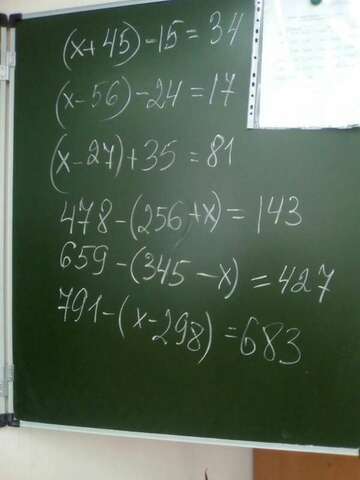 (x+45)-15=34
(x-56)-24=17
(x-27)+35=81
478-(256+x)=143
659-(345-x)=427
791-(x-298)=683